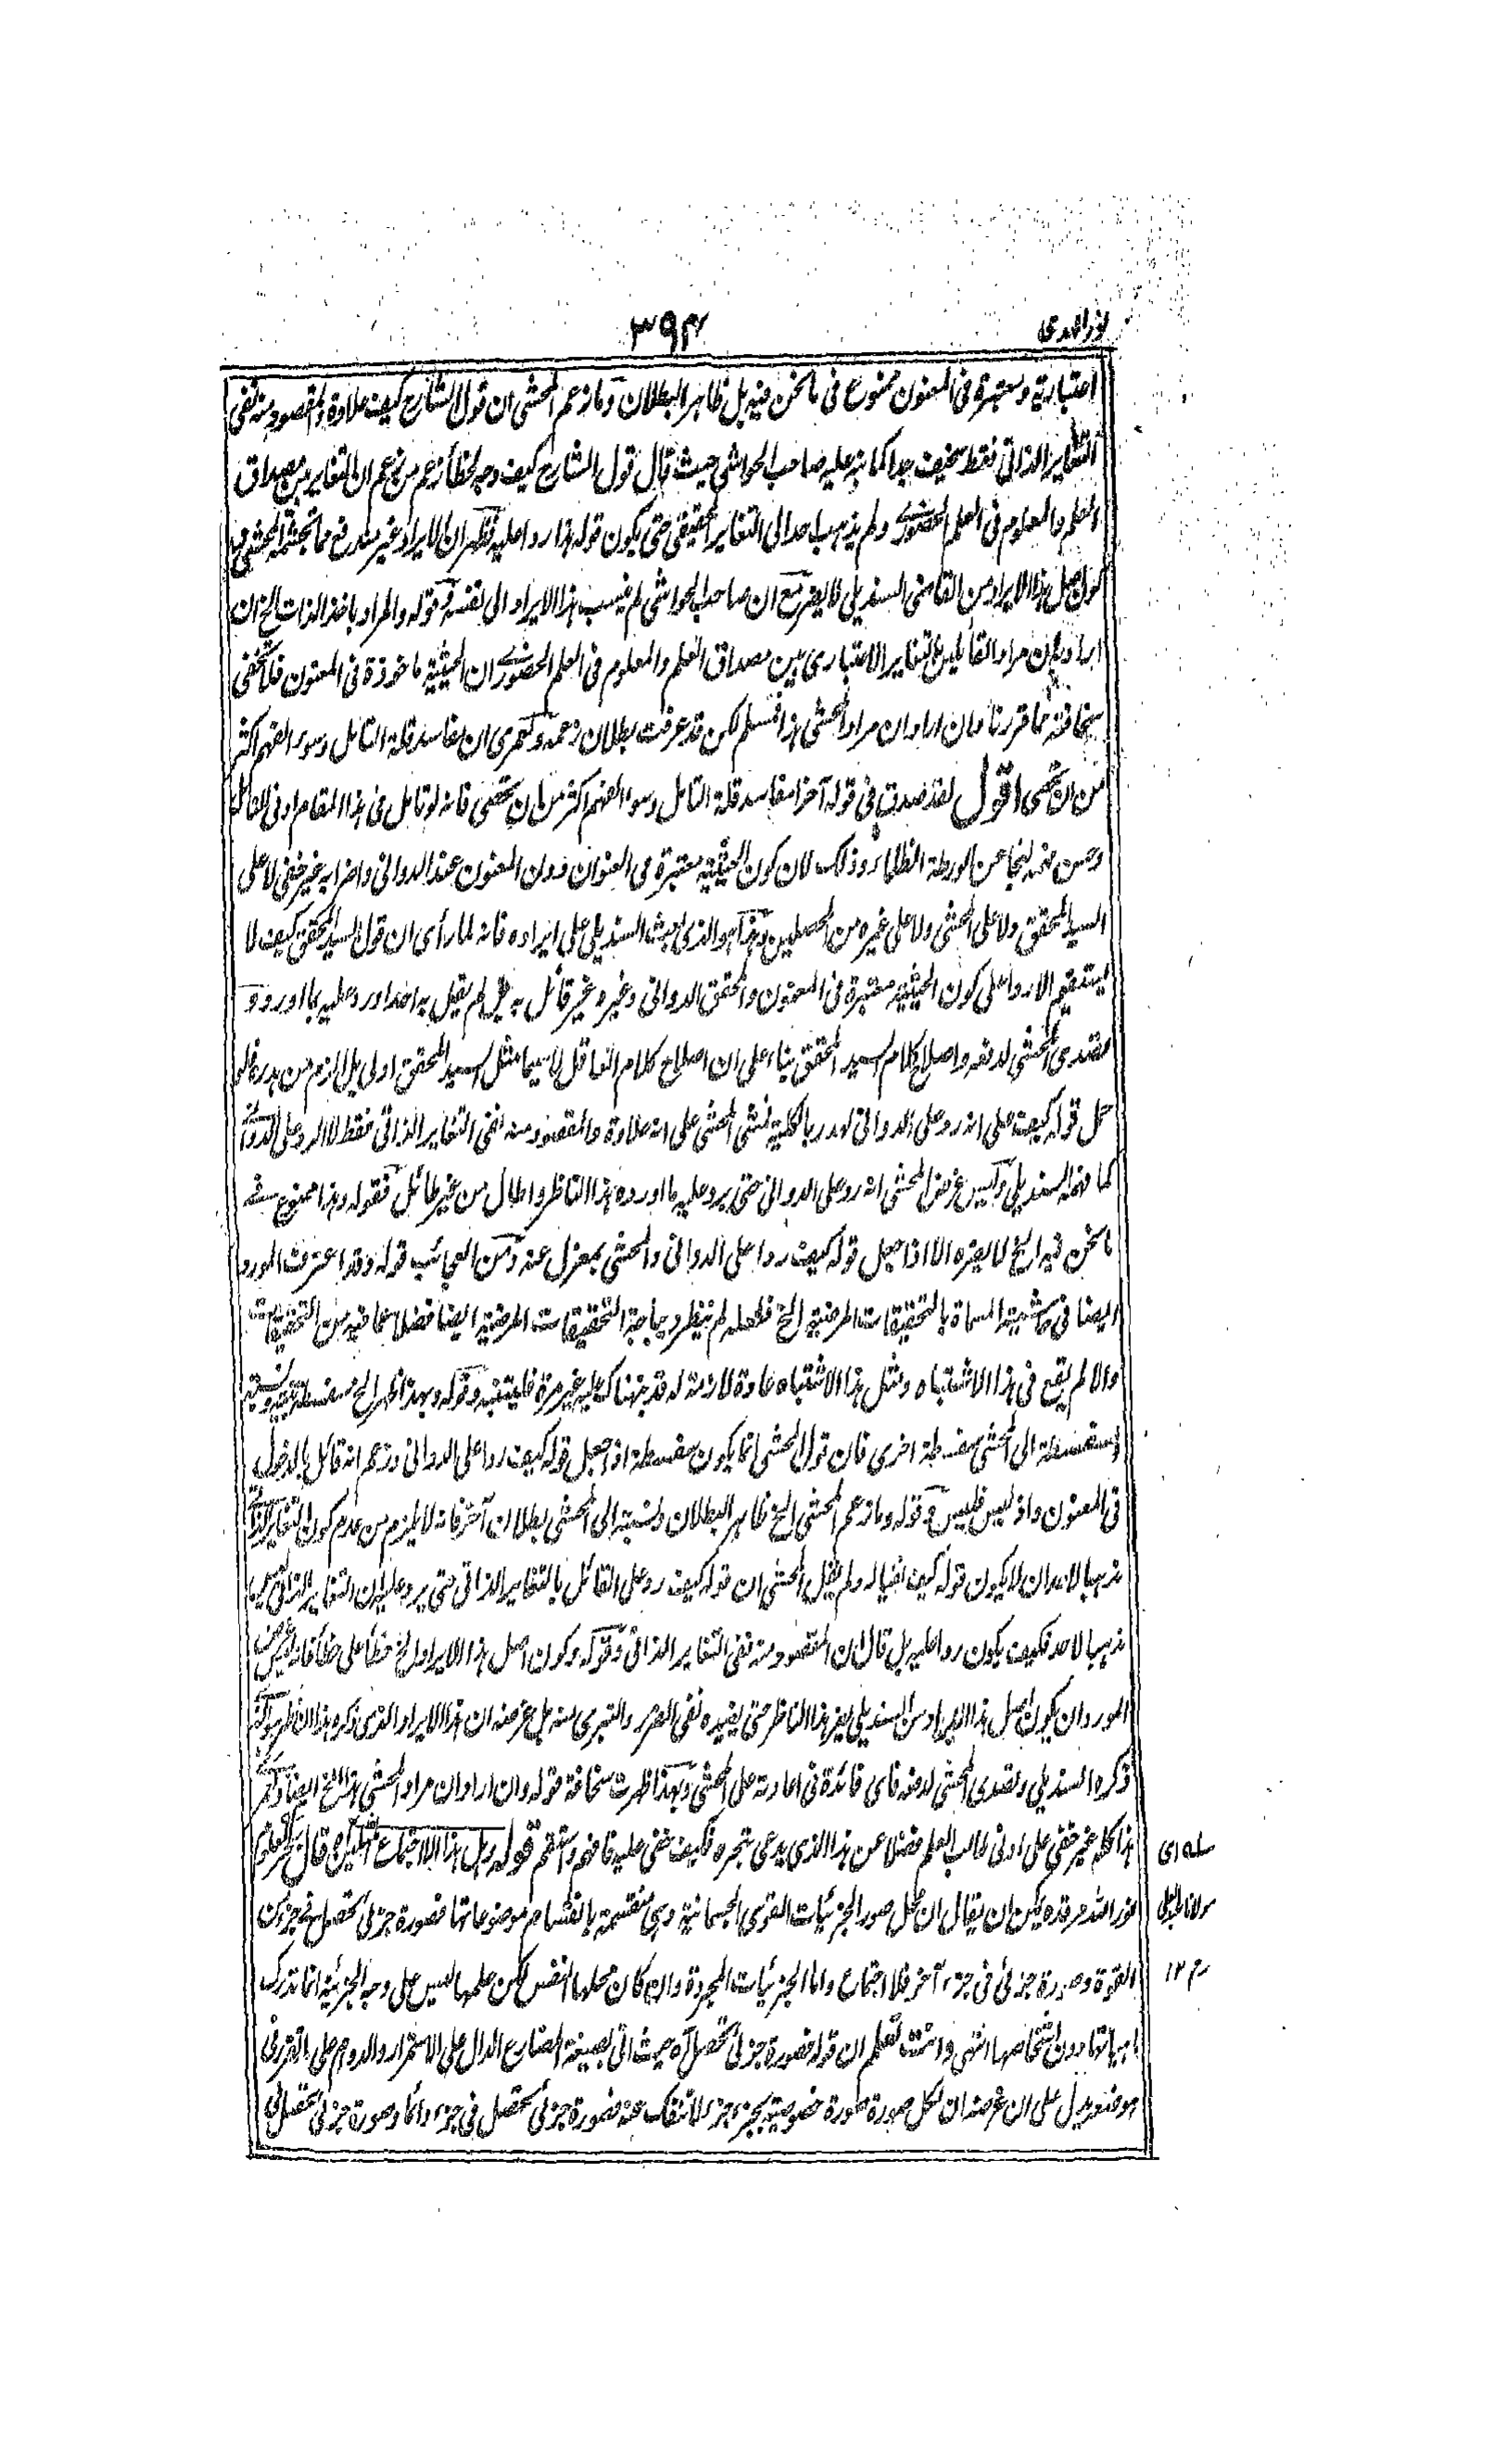 نور الهدى
٣٩٤
اعتبارية ومعتبرة فى المعنون ممنوع فى ما نحن فيه بل ظاهر البطلان وما زعم المحشى ان قول الشارح كيف علاوة والمقصود منه نفى
التغاير الذاتى فقط سخيف جدا كما نبه عليه صاحب الحواشى حيث قال قول الشارح كيف وجه لخطأ زعم من زعم ان التغاير بين مصداق
العلم والمعلوم فى العلم الحضورى ولم يذهب احد الى التغاير الحقيقى حتى يكون قوله هذا ردا عليه فظهر ان الايراد غير مندفع مما تجشمه المحشى
كون اصل هذا الايراد من القاضى السنديلى لا يضر مع ان صاحب الحواشى لم ينسب هذا الايراد الى نفسه قوله والمراد باخذ الذات الخ ان
اراد به ان مراد القائلين بالتغاير الاعتبارى بين مصداق العلم والمعلوم فى العلم الحضورى ان الحيثية ماخوذة فى المعنون فلا تخفى
سخافته مما قررنا وان اراد ان مراد المحشى هذا فمسلم لكن قد عرفت بطلان زعمه ولعمرى ان مفاسد قلة التامل وسوء الفهم اكثر
من ان تحصى اقول لقد صدق فى قوله آخرا مفاسد قلة التامل وسوء الفهم اكثر من ان تحصى فانه لو تامل فى هذا المقام ادنى تامل
وحسن فهمه لنجا عن الورطة الظلماء وذلك لان كون الحيثية معتبرة فى العنوان دون المعنون عند الدوانى واضرابه غير خفى لا على
السيد المحقق ولا على المحشى ولا على غيره من المحصلين وهذا هو الذى بعث السنديلى على ايراده فانه لما رأى ان قول السيد المحقق كيف لا
يستقيم الا ردا على كون الحيثية معتبرة فى المعنون والمحقق الدوانى وغيره غير قائل به بل لم يقل به احد اورد عليه بما اورد و
تصدى المحشى لدفعه واصلاح كلام السيد المحقق بناء على ان اصلاح كلام العاقل لا سيما مثل السيد المحقق اولى بل الزم من هدره فلما
حمل قوله كيف على انه رد على الدوانى لهدر بالكلية فمشى المحشى على انه علاوة والمقصود منه نفى التغاير الذاتى فقط لا الرد على الدوانى
كما فهمه السنديلى وليس غرض المحشى انه رد على الدوانى حتى يرد عليه ما اورده هذا الناظر واطال من غير طائل فقوله وهذا ممنوع فى
ما نحن فيه الخ لا يضره الا اذا جعل قوله كيف ردا على الدوانى والمحشى بمعزل عنه ومن العجائب قوله وقد اعترف المورد
ايضا فى حاشيته المسماة بالتحقيقات المرضية الخ فلعله لم ينظر ديباجة التحقيقات المرضية ايضا فضلا عما فيه من التحقيقات
والا لم يقع فى هذا الاشتباه ومثل هذا الاشتباه عادة لازمة له قد نبهناك عليه غير مرة فليتنبه وقوله وبهذا ظهر الخ سفسطة
السفسطة الى المحشى سفسطة اخرى فان قول المحشى انما يكون سفسطة اذا جعل قوله كيف ردا على الدوانى وزعم انه قائل بالدخول
فى المعنون واذ ليس فليس وقوله وما زعم المحشى الخ ظاهر البطلان ونسبته الى المحشى بطلان آخر فانه لا يلزم من عدم كون التغاير الذاتى
مذهبا لاحد ان لا يكون قوله كيف نفيا له ولم يقل المحشى ان قوله كيف رد على القائل بالتغاير الذاتى حتى يرد عليه ان التغاير الذاتى ليس
مذهبا لاحد فكيف يكون ردا عليه بل قال ان المقصود منه نفى التغاير الذاتى وقوله وكون اصل هذا الايراد الخ خطأ على خطأ فانه ليس غرض
المورد ان يكون اصل هذا الايراد من السنديلى يضر هذا الناظر حتى يفيده نفى الضرر والتبرى منه بل غرضه ان هذا الايراد الذى ذكره هذا الناظر
ذكره السنديلى وتصدى المحشى لدفعه فاى فائدة فى اعادته على المحشى وبهذا ظهرت سخافة قوله وان اراد ان مراد المحشى هذا الخ ايضا
هذا كله غير خفى على ادنى طالب العلم فضلا عن هذا الذى يدعى تبحره فكيف خفى عليه فافهم واستقم قوله وهل هذا الا اجتماع المثلين قال بحر العلوم
نور الله مرقده يمكن ان يقال ان محل صور الجزئيات القوى الجسمانية وهى منقسمة بانقسام موضوعاتها فصورة جزئى تحصل فى جزء من
القوة وصورة جزئى فى جزء آخر فلا اجتماع واما الجزئيات المجردة وان كان محلها النفس لكن علمها ليس على وجه الجزئية انما تدرك
ماهياتها دون اشخاصها انتهى وانت تعلم ان قوله فصورة جزئى تحصل آه حيث اتى بصيغة المضارع الدال على الاستمرار والدوام على ما تقرر فى
موضعه يدل على ان غرضه ان لكل صورة صورة خصوصية بجزء جزء لا تنفك عنه فصورة جزئى تحصل فى جزء دائما وصورة جزئى تحصل فى
سله اى
مولانا
رح ١٢